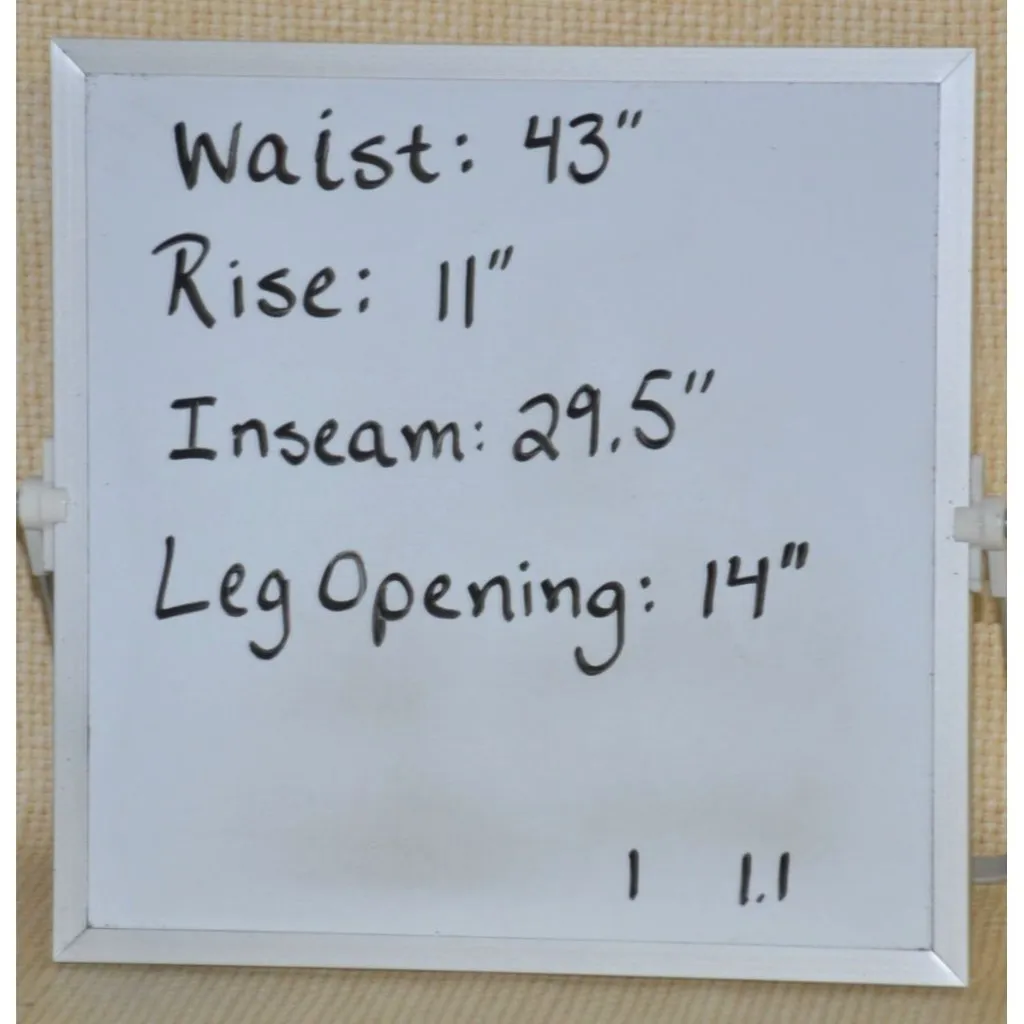 Waist: 43"
Rise: 11"
Inseam: 29.5"
Leg Opening: 14"
1 1.1